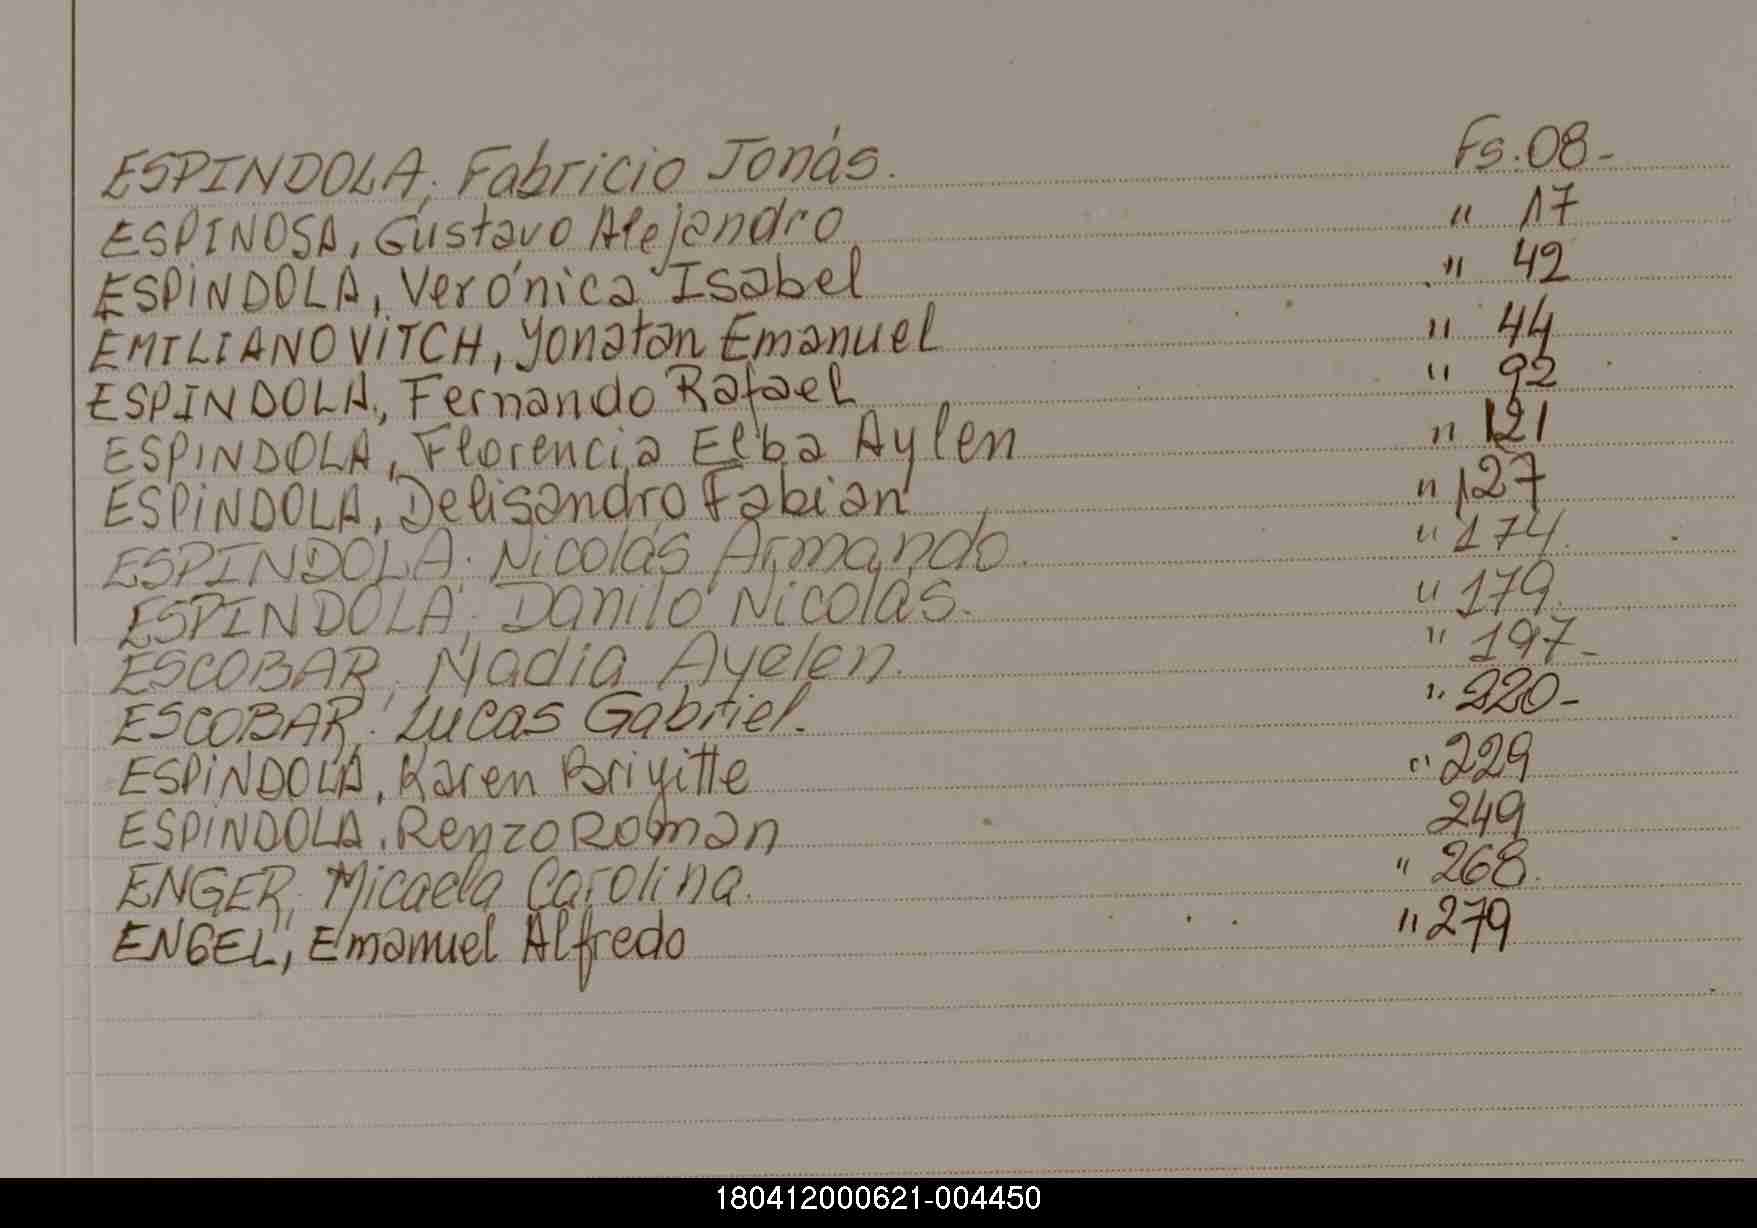 ESPINDOLA, Fabricio Jonás. Fs. 08-
ESPINOSA, Gustavo Alejandro " 17
ESPINDOLA, Verónica Isabel " 42
EMILIANOVITCH, Yonatan Emanuel " 44
ESPINDOLA, Fernando Rafael " 92
ESPINDOLA, Florencia Elba Aylen " 121
ESPINDOLA, Delisandro Fabian " 127
ESPINDOLA, Nicolás Armando. " 174.
ESPINDOLA, Danilo Nicolás. " 179.
ESCOBAR, Nadia Ayelen. " 197-
ESCOBAR, Lucas Gabriel. " 220-
ESPINDOLA, Karen Briyitte " 229
ESPINDOLA, Renzo Roman 249
ENGER, Micaela Carolina. " 268.
ENGEL, Emanuel Alfredo " 279
180412000621-004450